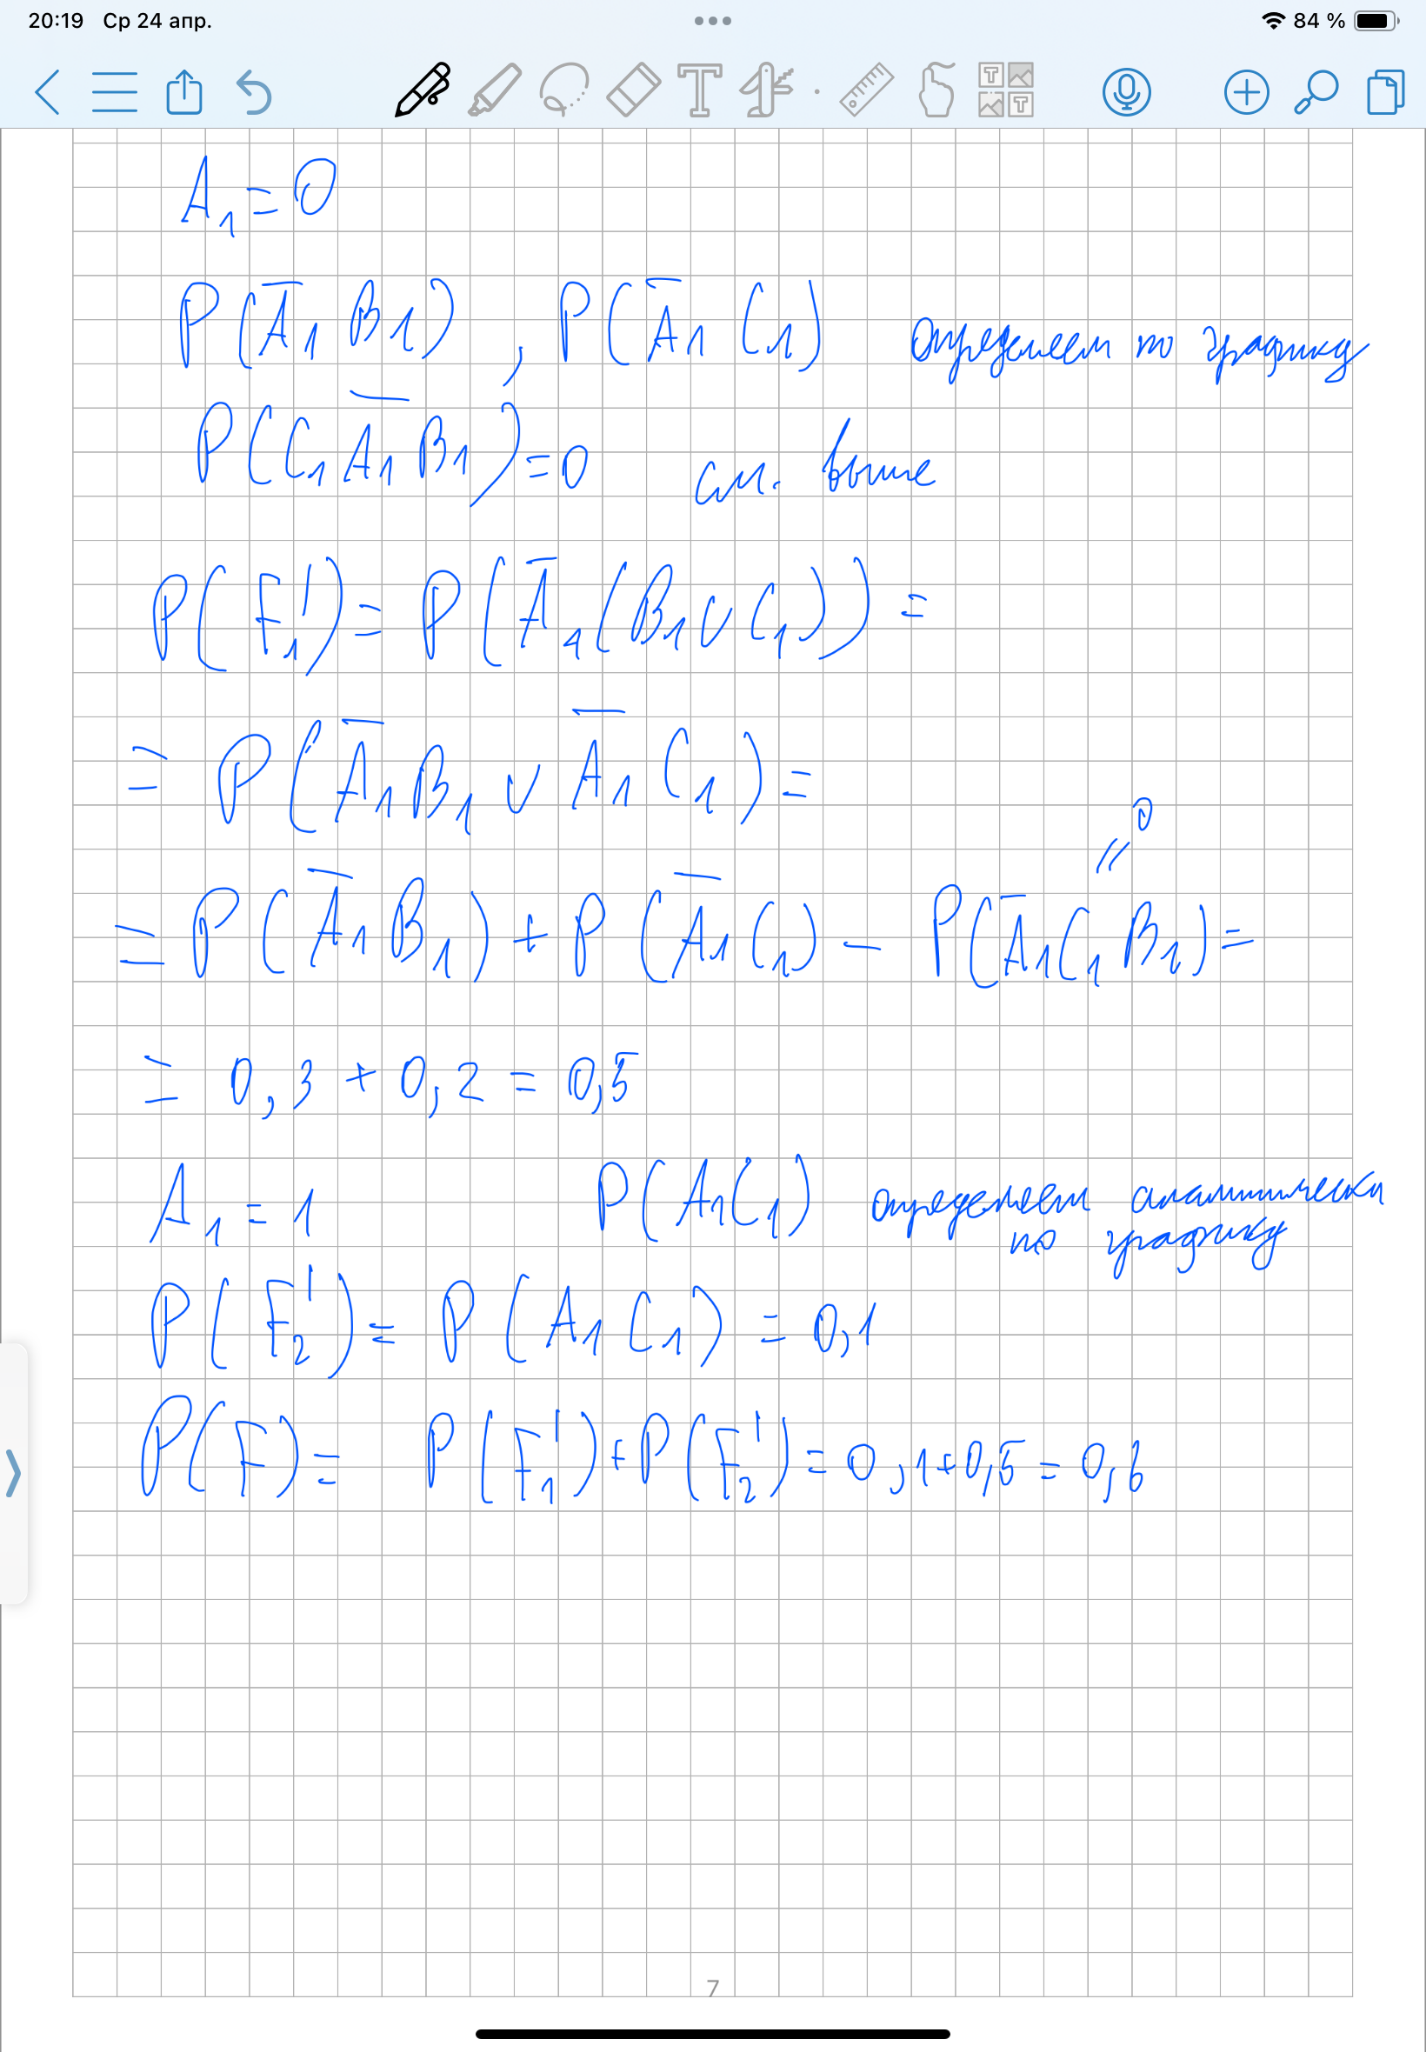 20:19 Ср 24 апр. 84 %
A₁ = 0
P(A̅₁ B₁), P(A̅₁ C₁) определяем по графику
P(C₁ A̅₁ B₁) = 0 см. выше
P(F₁') = P(A̅₁(B₁∪C₁)) =
= P(A̅₁B₁ ∪ A̅₁C₁) =
= P(A̅₁B₁) + P(A̅₁C₁) − P(A̅₁C₁B₁) =
// 0
= 0,3 + 0,2 = 0,5
A₁ = 1 P(A₁C₁) определяем аналитически
по графику
P(F₂') = P(A₁C₁) = 0,1
P(F) = P(F₁') + P(F₂') = 0,1+0,5 = 0,6
7